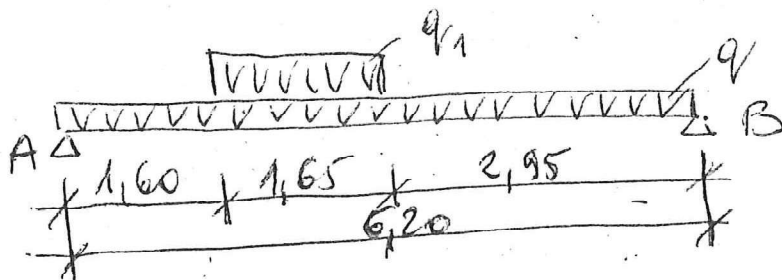 q1
q
A B
1,60 1,65 2,95
6,20